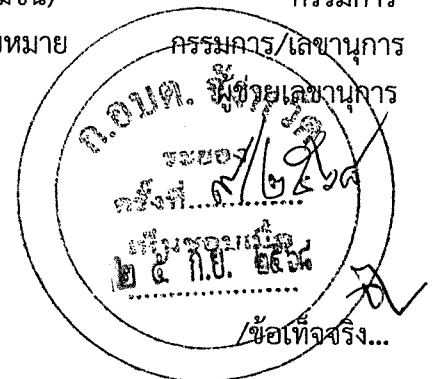 กรรมการ
กรรมการ/เลขานุการ
ผู้ช่วยเลขานุการ
ก.อบต. จังหวัด
ระยอง
ครั้งที่ ๙/๒๕๖๘
เห็นชอบเมื่อ
๒๕ ก.ย. ๒๕๖๘
/ข้อเท็จจริง...